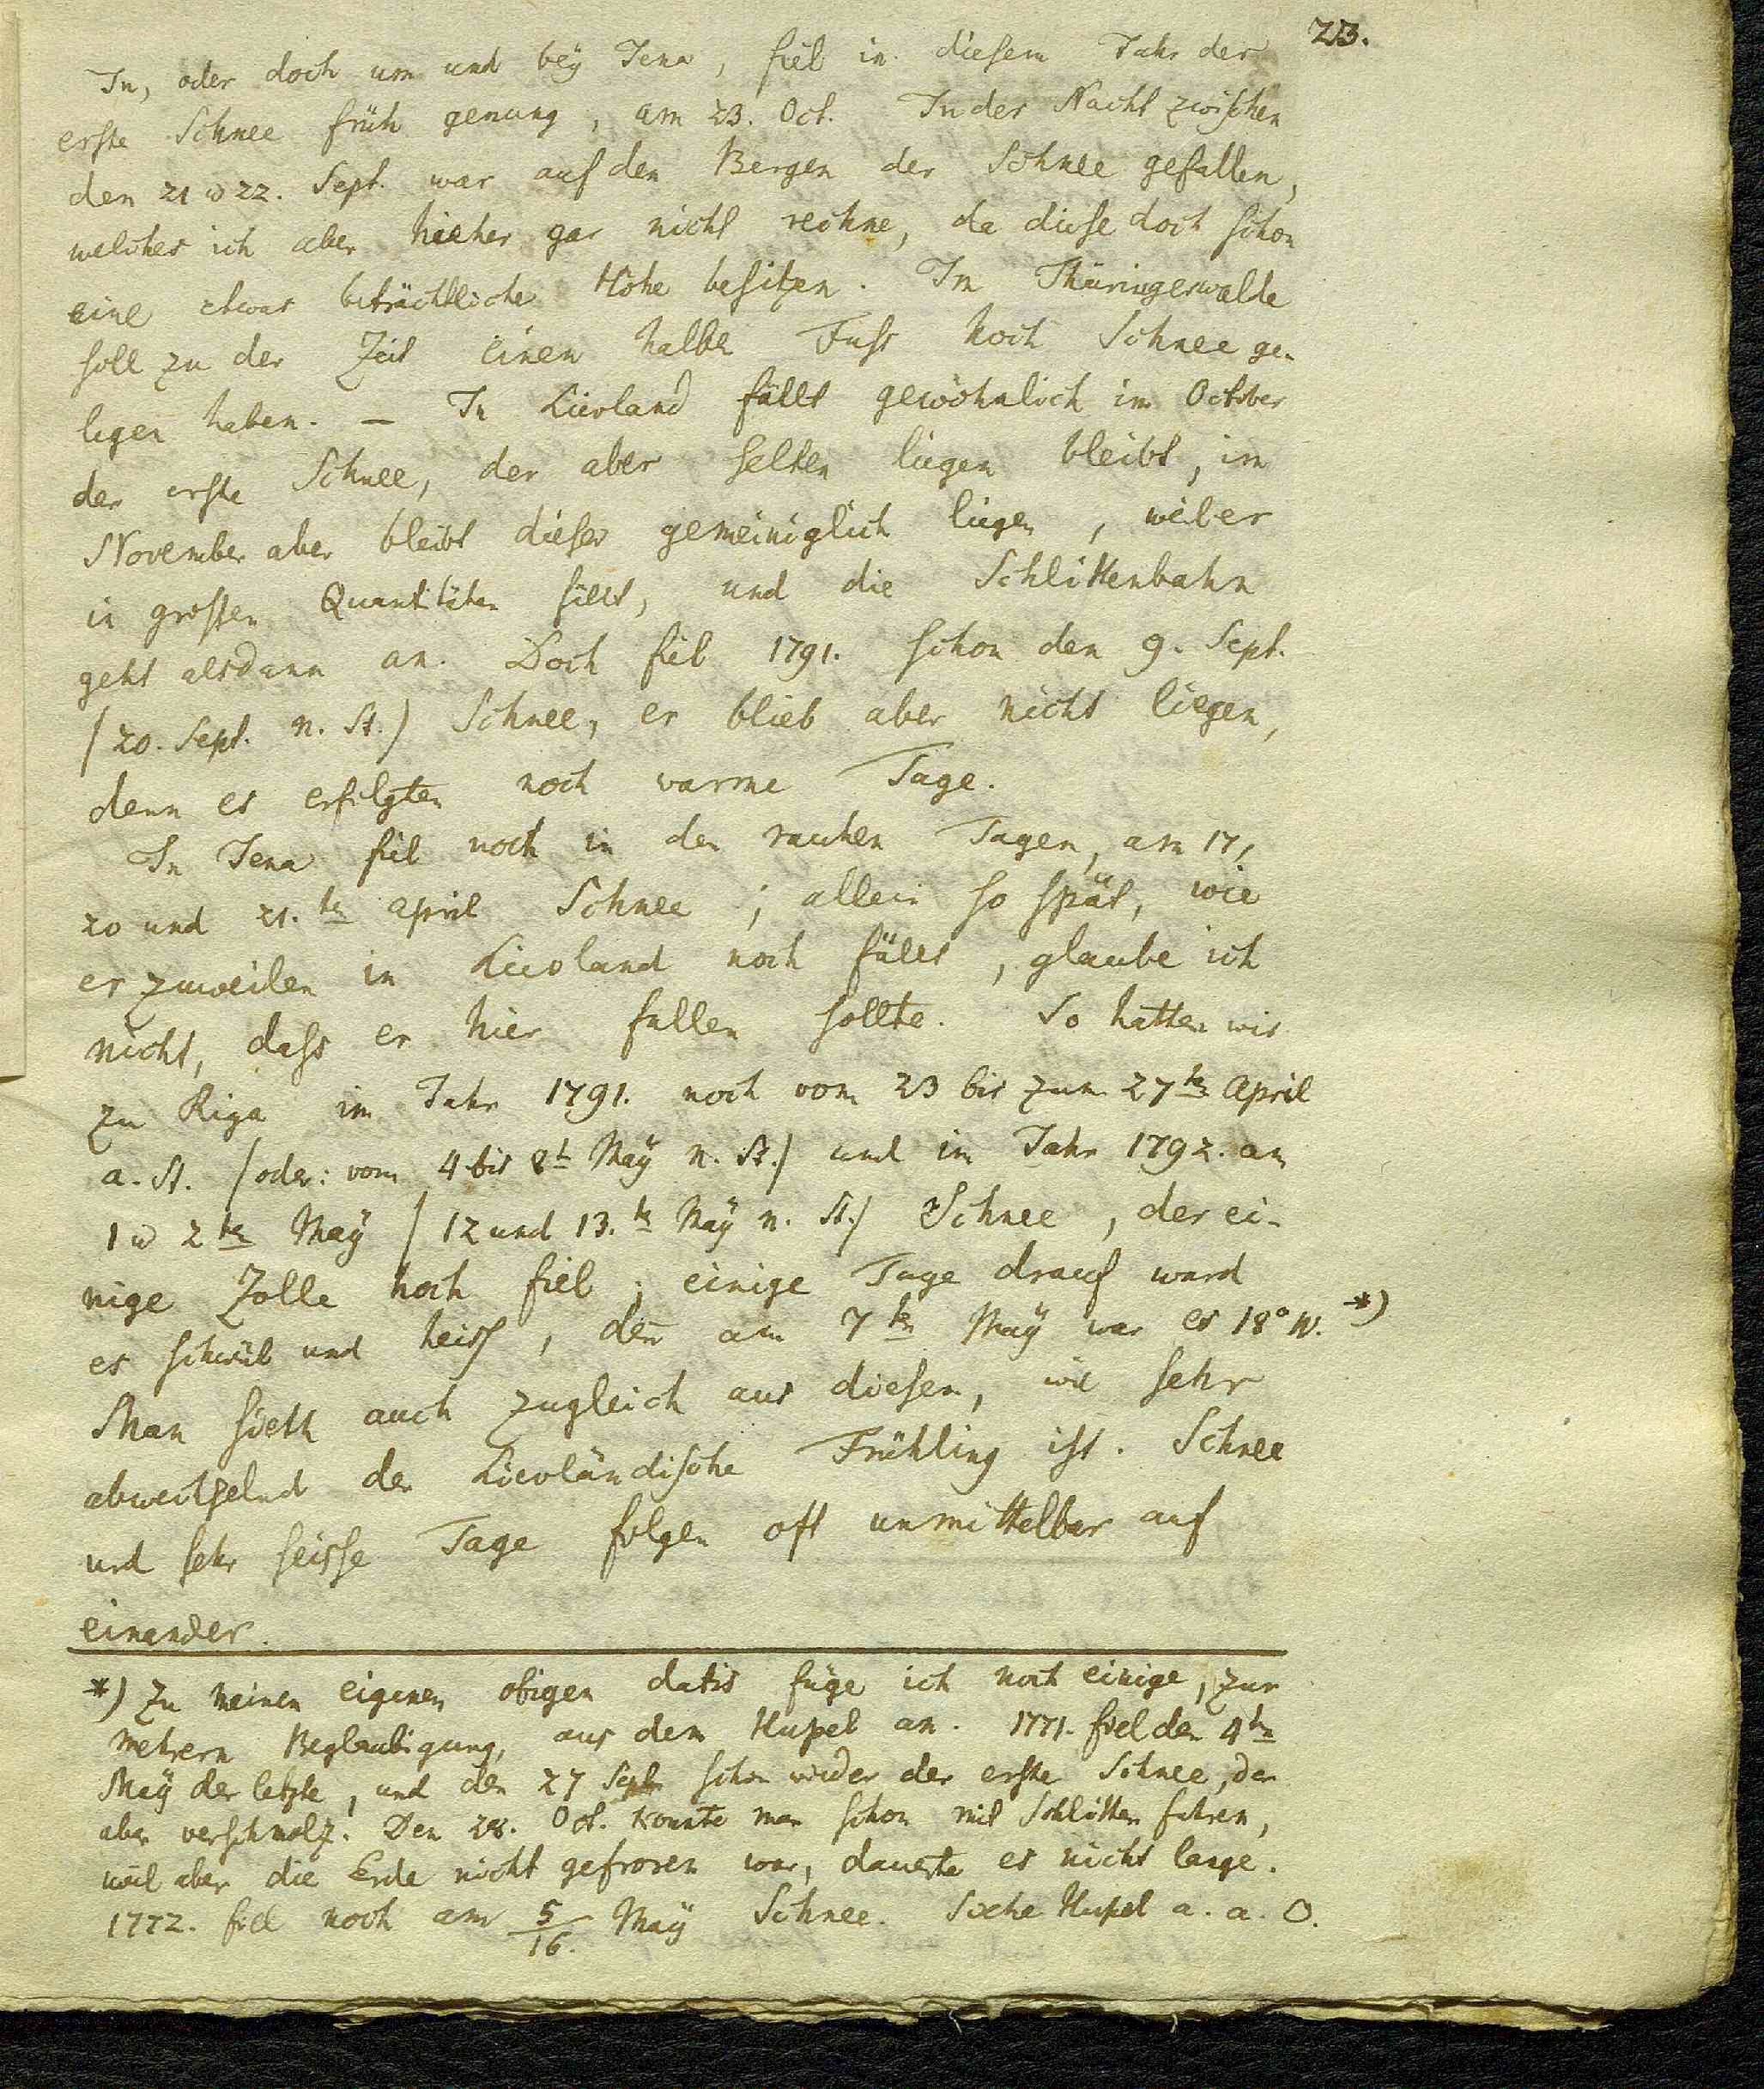 23.
In, oder doch um und beÿ Jena, fiel in diesem Jahr der
erste Schnee früh genung, am 23. Oct. In der Nacht zwischen
den 21 u 22. Sept. war auf den Bergen der Schnee gefallen,
welches ich aber hieher gar nicht rechne, da diese doch schon
eine etwas beträchtliche Höhe besitzen. Im Thüringerwalde
soll zu der Zeit einen halben Fuss hoch Schnee ge-
legen haben. – In Lievland fällt gewöhnlich im October
der erste Schnee, der aber selten liegen bleibt, im
November aber bleibt dieser gemeiniglich liegen, weil er
in grossen Quantitäten fällt, und die Schlittenbahn
geht alsdann an. Doch fiel 1791. schon den 9. Sept.
(20. Sept. n. St.) Schnee, er blieb aber nicht liegen,
denn es erfolgten noch warme Tage.
In Jena fiel noch in den rauhen Tagen, am 17,
20 und 21.ten April Schnee; allein so spät, wie
er zuweilen in Lievland noch fällt, glaube ich
nicht, dass er hier fallen sollte. So hatten wir
zu Riga im Jahr 1791. noch vom 23 bis zum 27ten April
a. St. (oder: vom 4 bis 8t Maÿ n. St.) und im Jahr 1792. am
1 u 2ten Maÿ (12 und 13.ten Maÿ n. St.) Schnee, der ei-
nige Zolle hoch fiel; einige Tage drauf ward
es schwül und heiss, deñ am 7ten Maÿ war es 18° W. *)
Man sieth auch zugleich aus diesen, wie sehr
abwechselnd der Lievländische Frühling ist. Schnee
und sehr heisse Tage folgen oft unmittelbar auf
einander.
*) Zu meinen eigenen obigen datis füge ich noch einige, zur
mehrern Beglaubigung, aus dem Hupel an. 1771. fiel den 4ten
Maÿ der letzte, und den 27 Sept. schon wieder der erste Schnee, der
aber verschmolz. Den 28. Oct. konnte man schon mit Schlitten fahren,
weil aber die Erde nicht gefroren war, dauerte es nicht lange.
1772. fiel noch am 5/16. Maÿ Schnee. Siehe Hupel a. a. O.